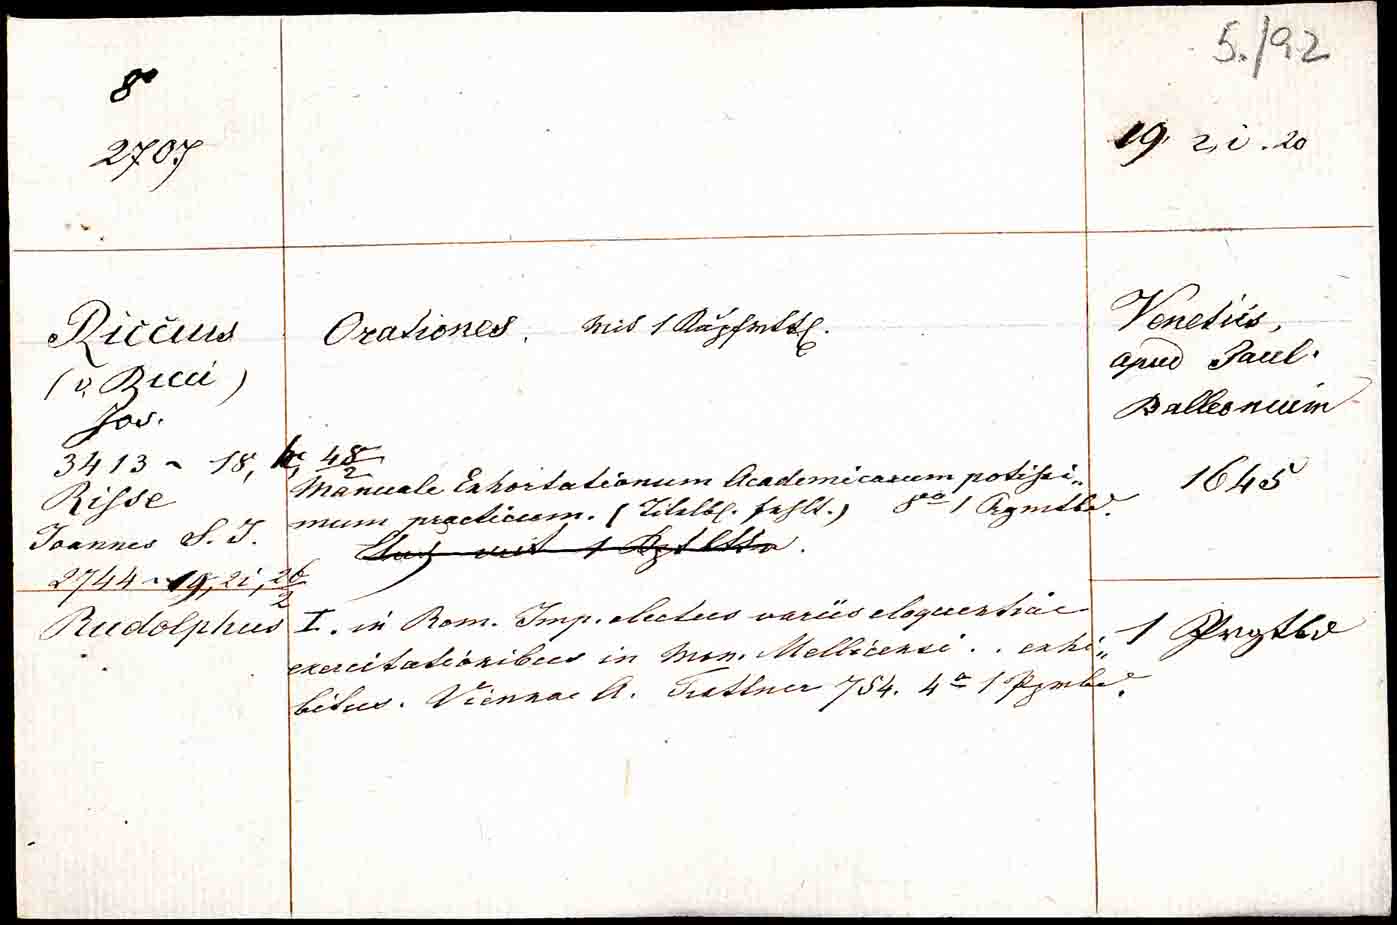 5./92
8°
2707
19, 2, i. 20
Riccius
(v. Ricci)
Jos.
Orationes. mit 1
Venetiis,
apud Paul.
Balleonium
1645
3413 - 18, 48/2
Risse
Joannes S. J.
Manuale Exhortationum Academicarum potissi„
mum practicum. (Titelbl. fehlt.) 8° 1
2744 - 19, 2i, 26/2
Rudolphus
I. in Rom. Imp. electus variis eloquentiae
exercitationibus in Mon. Mellicensi . . exhi„
bitus. Viennae A. Trattner 754. 4° 1
1